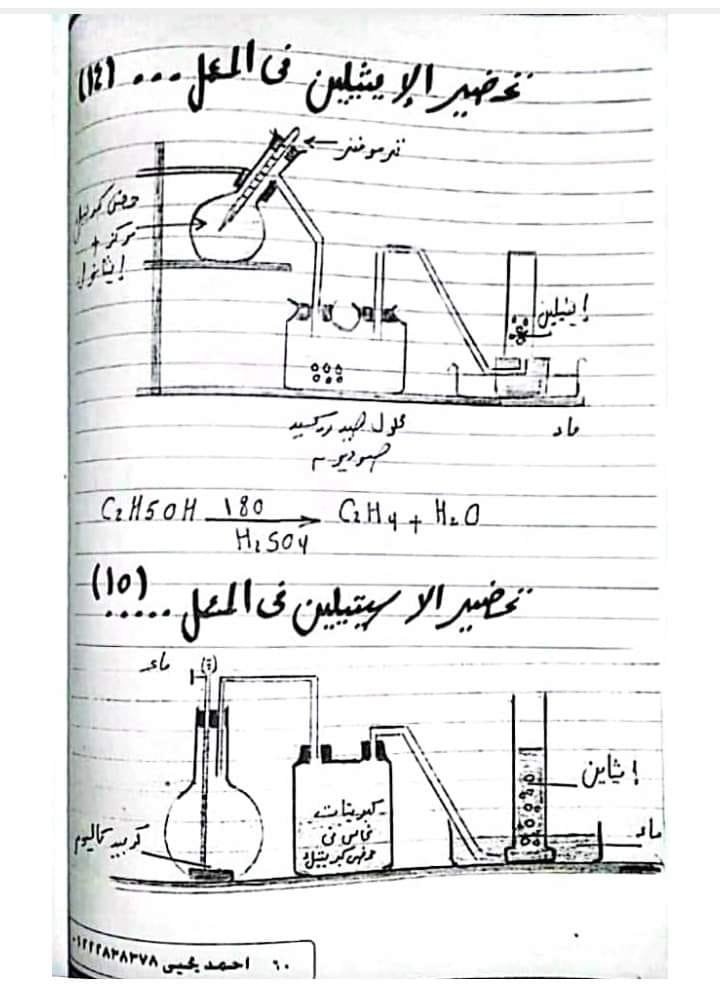 تحضير الإيثيلين فى المعمل ... (١٤)
ترمومتر
حمض كبريتيك
مركز +
إيثانول
إيثيلين
محلول هيدروكسيد
صوديوم
ماء
C2H5OH 180 → C2H4 + H2O
H2SO4
تحضير الاسيتيلين فى المعمل ..... (١٥)
ماء
إيثاين
كبريتات
نحاس فى
حمض كبريتيك
ماء
كربيد كالسيوم
٦٠ احمد يحيى ٠١٢٢٢٨٣٨٣٧٨